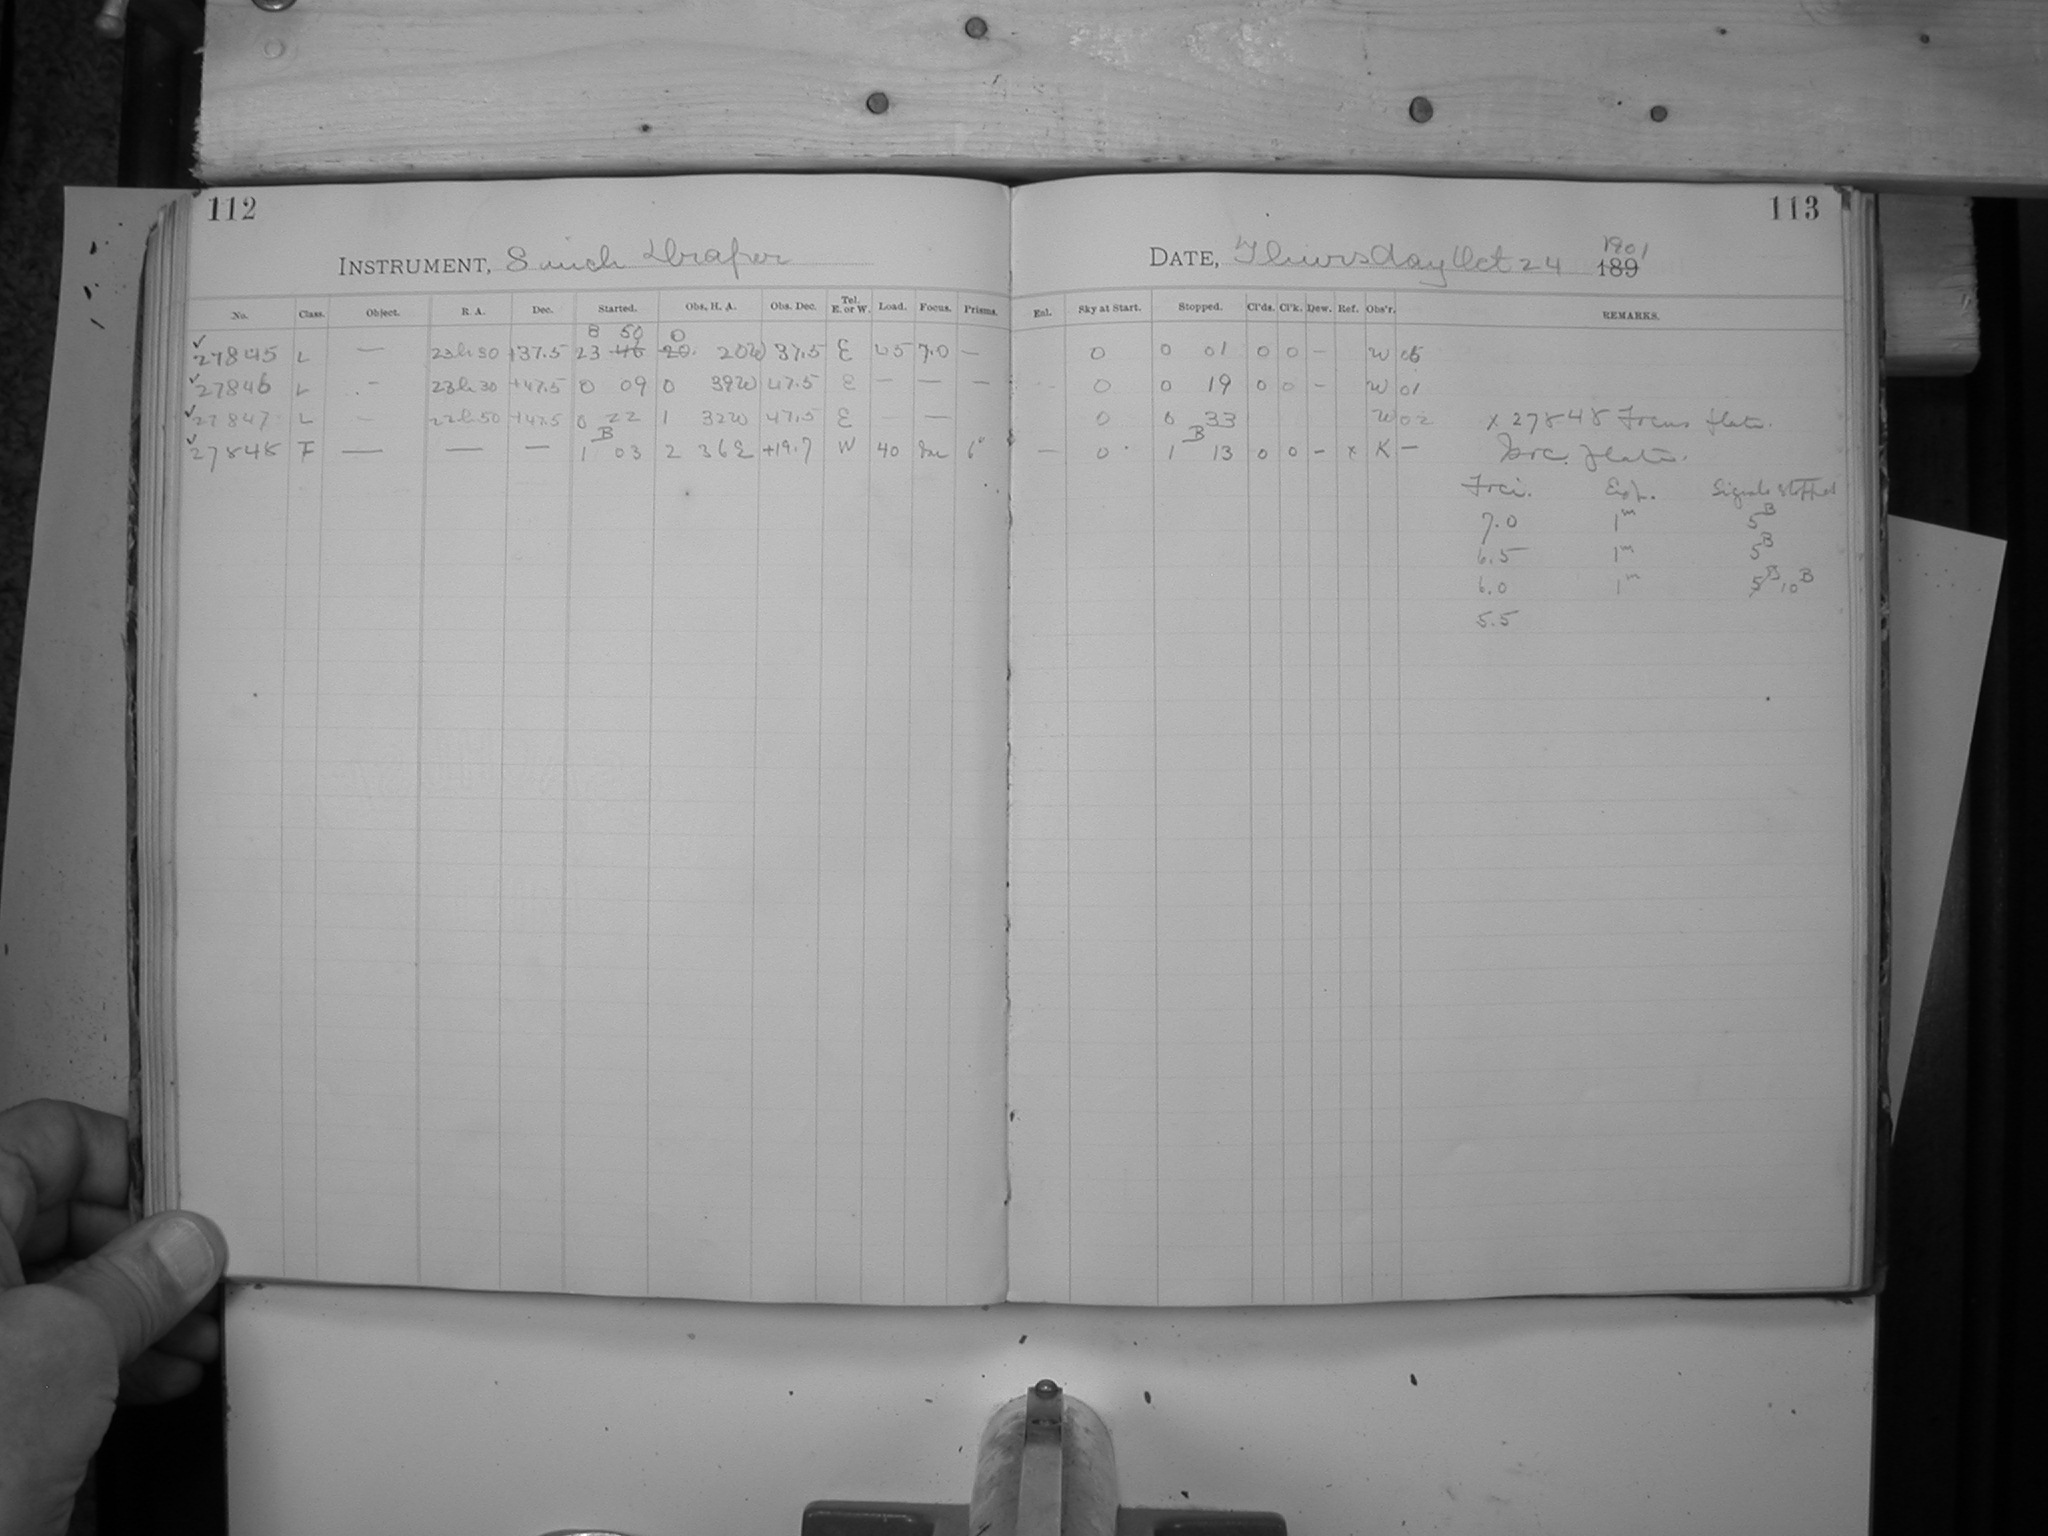 112
INSTRUMENT, 8 inch Draper
No. Class. Object. R. A. Dec. Started. Obs. H. A. Obs. Dec. Tel. E. or W. Load. Focus. Prisms.
B 50 0
27845 L — 23h 30 +37.5 23 46 20. 20W 37.5 E 45 7.0 —
27846 L - 23h 30 +47.5 0 09 0 39W 47.5 E — — —
27847 L — 22h 50 +47.5 0 22 1 32W 47.5 E —
B
27848 F — — — 1 03 2 36E +19.7 W 40 6"
113
DATE, Thursday Oct 24 1901 189
Enl. Sky at Start. Stopped. Cl'ds. Cl'k. Dew. Ref. Obs'r. REMARKS.
0 0 01 0 0 - W
0 0 19 0 0 - W 01
0 0 33 W 02 x 27848 Focus plate.
B
— 0 1 13 0 0 - x K — plate.
Foci. Exp. Signals stopped
7.0 1m 5B
6.5 1m 5B
6.0 1m 5B 10B
5.5